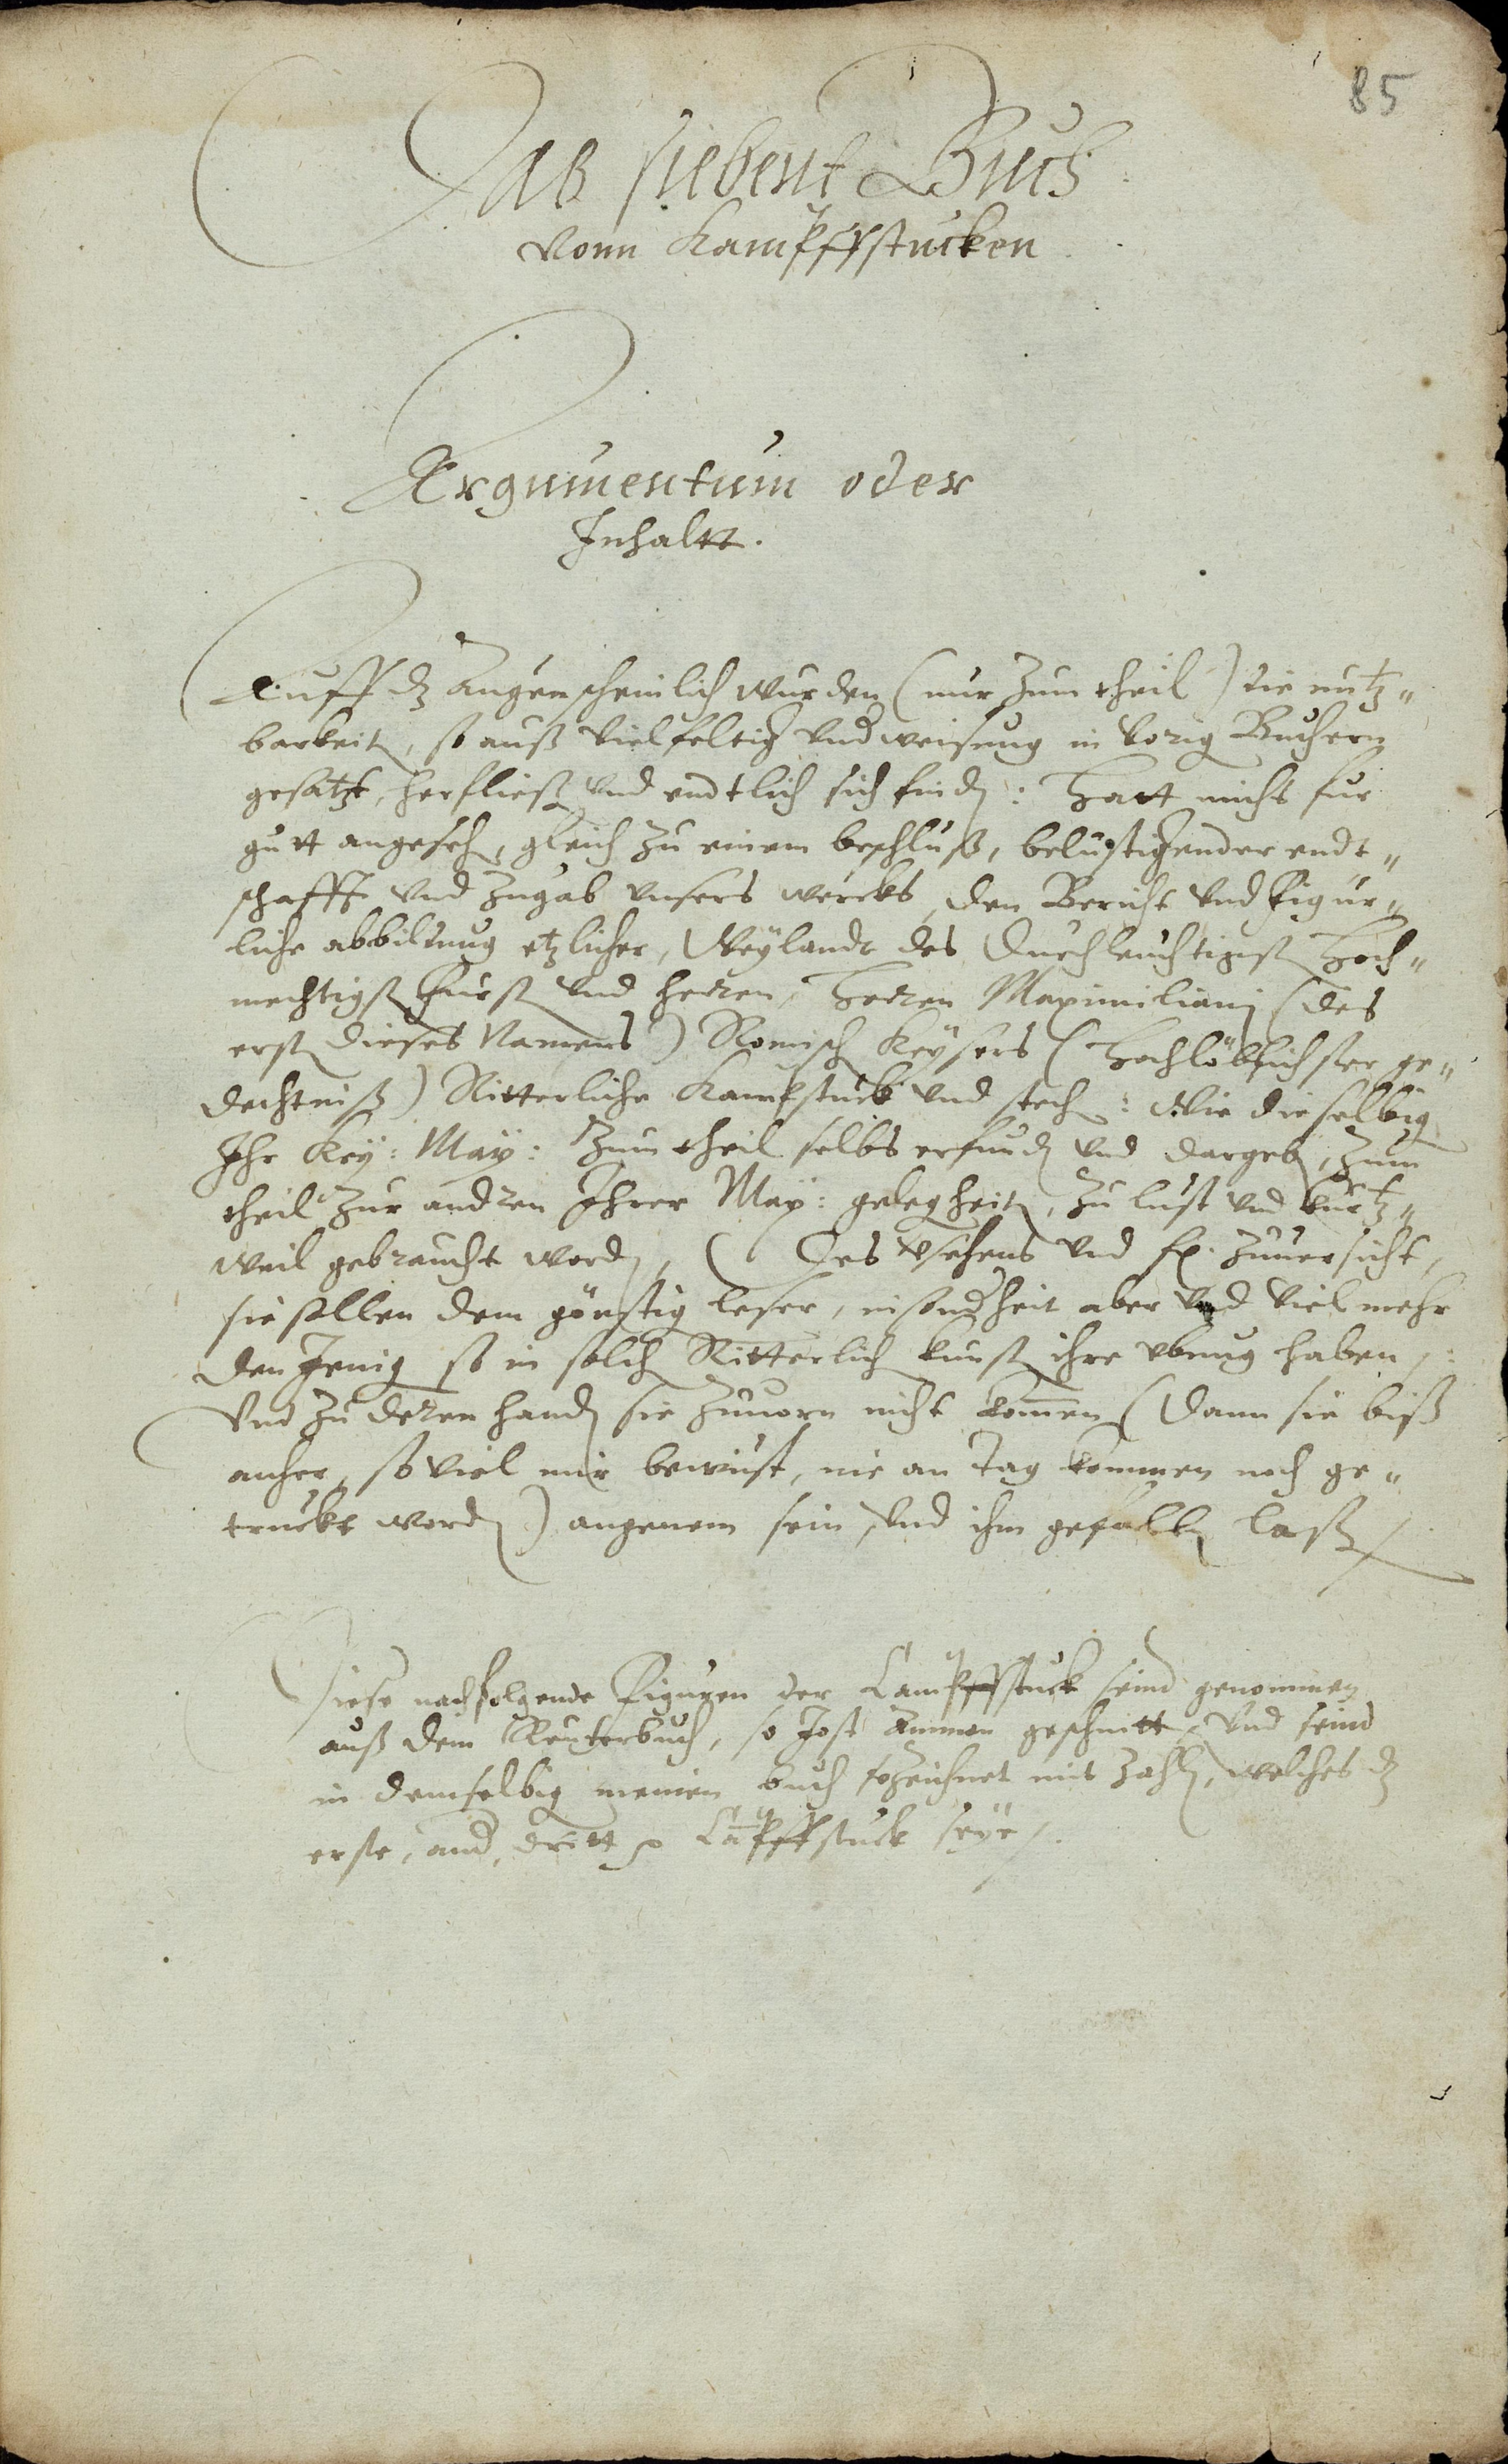 85
Das siebent Buch
vonn Kampffstucken
Argumentum oder
Inhaltt.
Auff dz Augenscheinlich wurden (nur zum theil) die nutz„
barkeit, so auß vielfeltig underweisung in vorig Buchern
gesatzt, herfließ und endtlich sich find: Hatt mich fur
gutt angeseh, gleich zu einem beschluß, belustigender
schafft und zugab unsers wercks, den Bericht und Figur„
liche abbildung etzlicher, Weylandt des Durchleuchtigst Hoch„
mechtigst Furst und Herren, Herren Maximiliani (des
erst dieses Namens) Romisch Keysers (Hochlöblichster ge„
dechtniß) Ritterliche Kampstuck und stech: Wie dieselbig
Ihr Key: May: zum theil selbs erfund und dargeb, zum
theil zur andren Ihrer May: gelegheit, zu lust und kurtz„
weil gebraucht word, Des versehens und zuuersicht,
sie sollen dem günstig leser, insonderheit aber und vielmehr
den Jenig so in solch Ritterlich kunst ihre ubung haben,
Und zu deren hand sie zuuorn nicht kommen (Dann sie biß
anher, so viel mir bewust, nie an Tag kommen noch ge„
truckt word) angenem sein, und ihm gefallen laß
Diese nachfolgende Figuren der Campffstuck seind genommen
auß dem Reuterbuch, so Jost Ammon geschnitt, und seind
in demselbig meinen buch verzeichnet mit zahl, welches dz
erste, and, dritt Campffstuck seye.